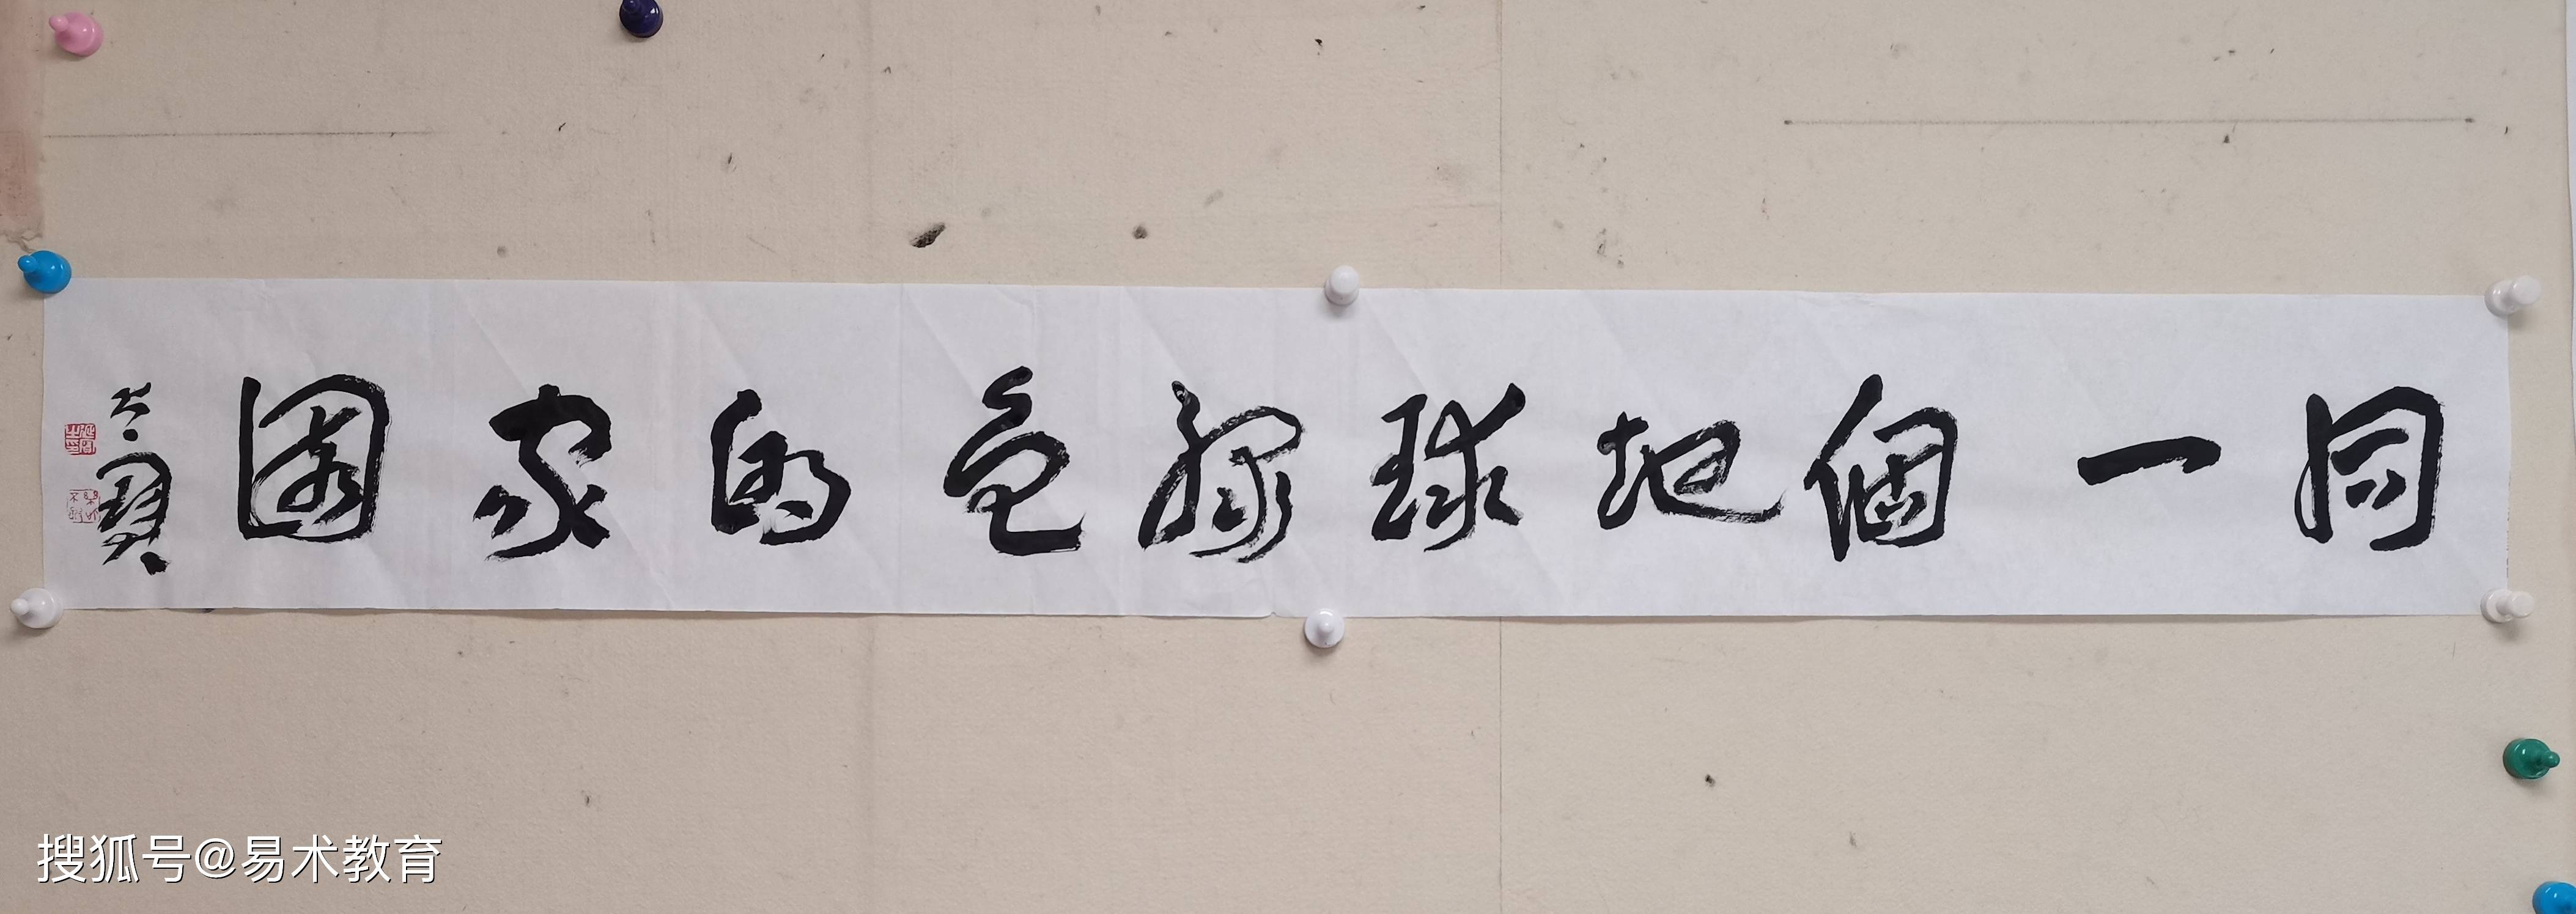 同一個地球綠色的家園
搜狐号@易术教育